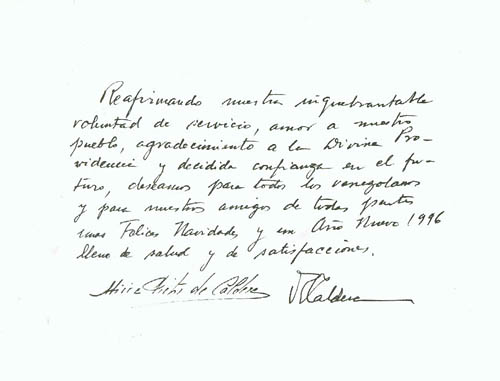 Reafirmando nuestra inquebrantable
voluntad de servicio, amor a nuestro
pueblo, agradecimiento a la Divina Pro-
videncia y decidida confianza en el fu-
turo, deseamos para todos los venezolanos
y para nuestros amigos de todas partes
unas Felices Navidades y un Año Nuevo 1996
lleno de salud y de satisfacciones.
de Caldera Caldera